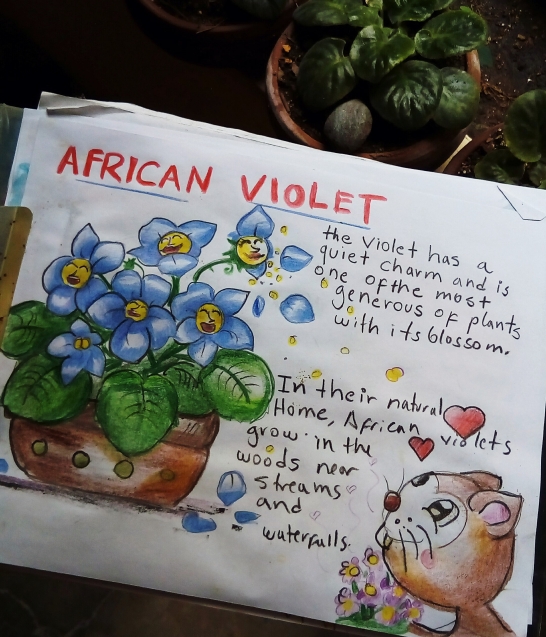 AFRICAN VIOLET
the violet has a
quiet charm and is
one of the most
generous of plants
with its blossom.
In their natural
Home, African violets
grow in the
woods near
streams
and
waterfalls.